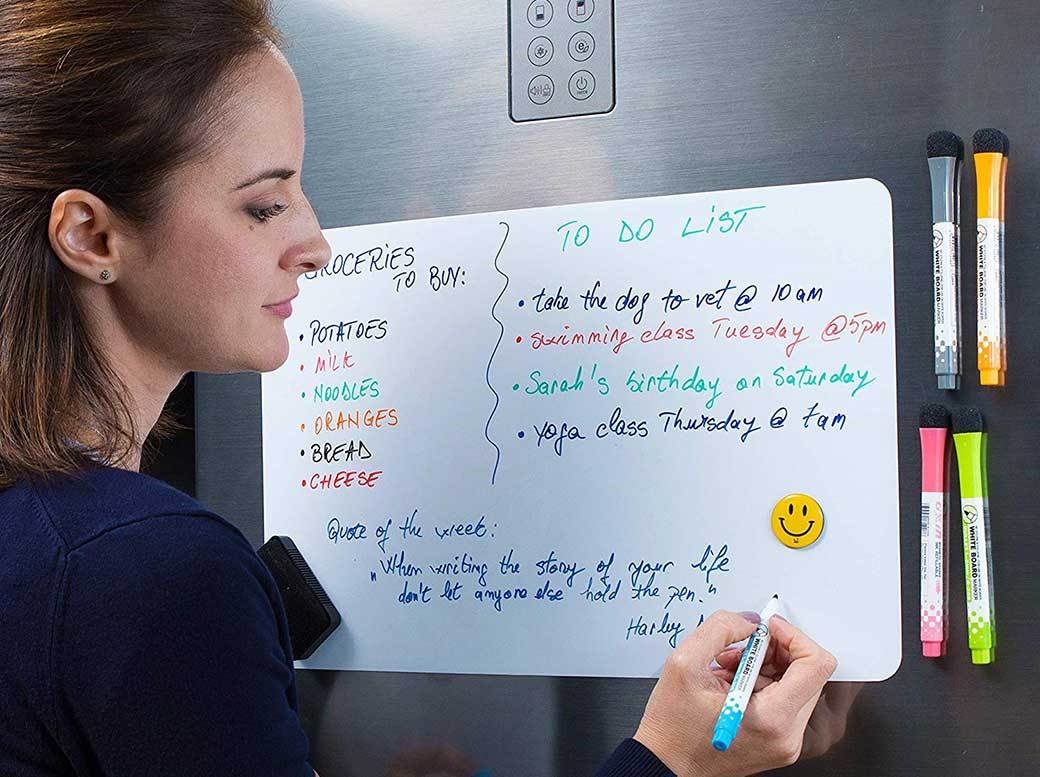 GROCERIES
TO BUY:
• POTATOES
• MILK
• NOODLES
• ORANGES
• BREAD
• CHEESE
TO DO LIST
• take the dog to vet @ 10 am
• swimming class Tuesday @5pm
• Sarah's birthday on Saturday
• yoga class Thursday @ 7am
Quote of the week:
"When writing the story of your life
don't let anyone else hold the pen."
Harley
WHITE BOARD
MARKER
WHITE BOARD
MARKER
WHITE BOARD
WHITE BOARD